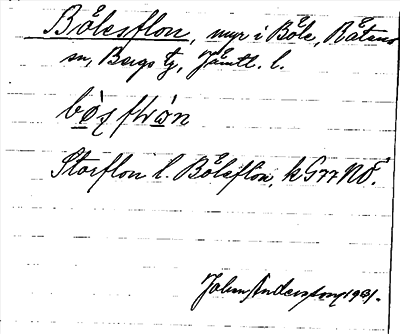 Bölesflon, myr i Böle, Rätans
sn, Bergs tg, Jämtl. l.
Storflon l. Bölesflon, k G77 NÖ.
John Andersson 1931.